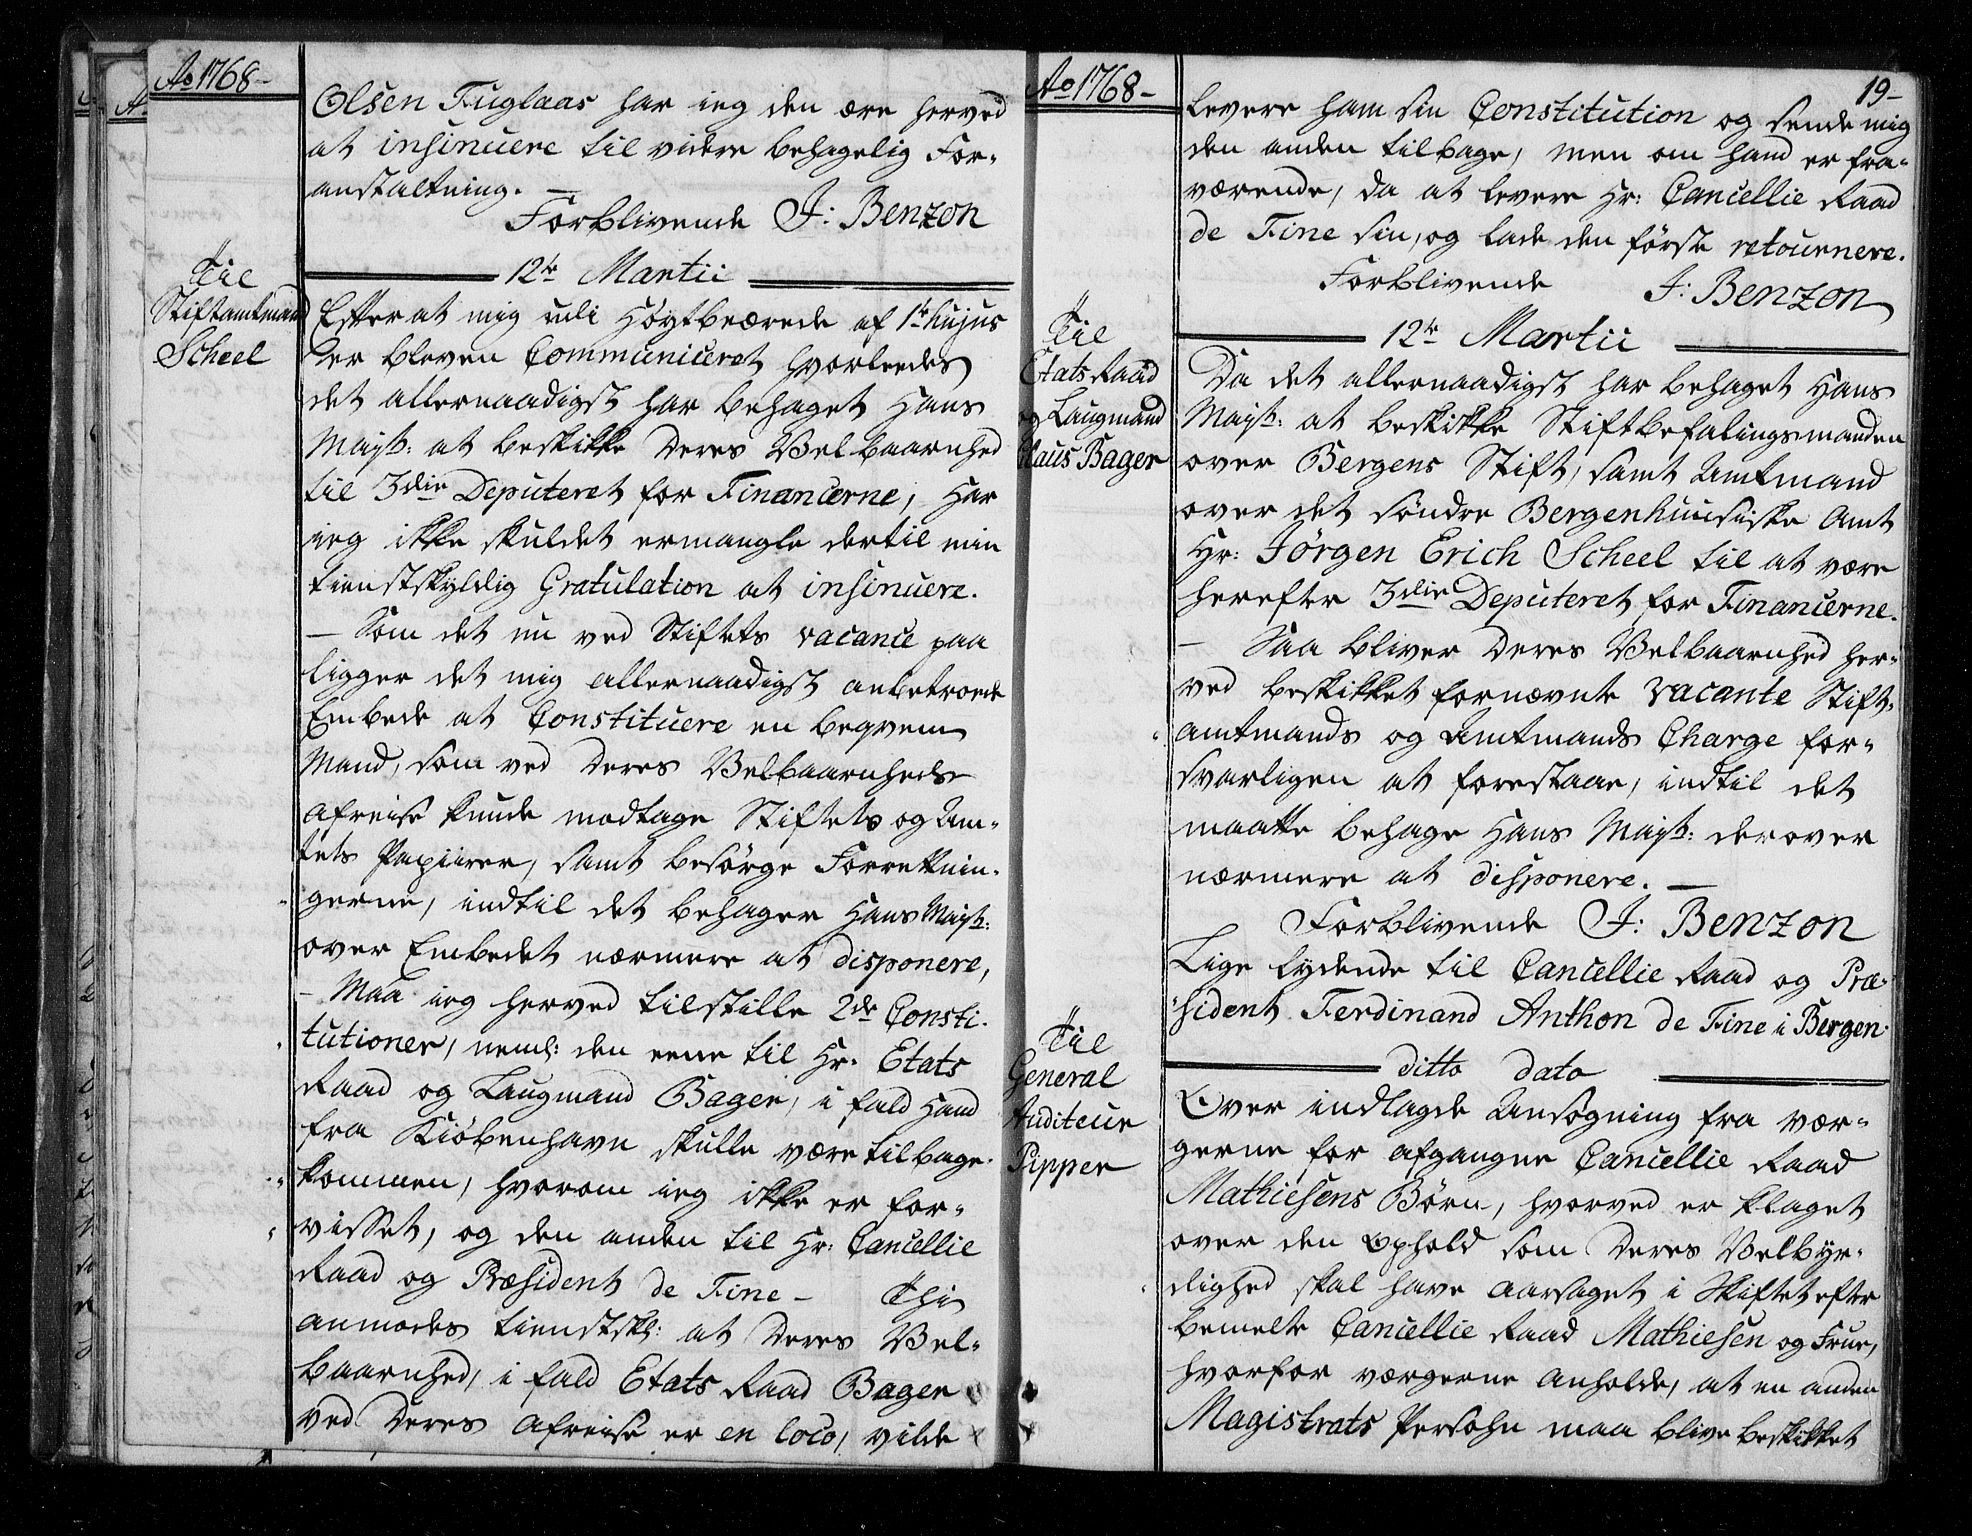 Ao 1768-
Olsen Fuglaas har ieg den ære herved
at insinuere til videre behagelig For-
anstaltning. -
Forblivende J: Benzon
12te Martii
Til
Stiftamtmand
Scheel
Efter at mig udi Høytbeærede af 1te hujus
er bleven Communiceret hvorleedes
det allernaadigst har behaget Hans
Mayt: at beskikke Deres Velbaarnhed
til 3die Deputeret for Financerne, Har
ieg ikke skuldet ermangle dertil min
tienstskyldig Gratulation at insinuere.
- Som det nu ved Stiftets vacance paa
ligger det mig allernaadigst anbetroede
Embede at Constituere en beqvem
Mand, som ved Deres Velbaarnheds
afreise kunde modtage Stiftets og Am-
tets Papiirer, samt besørge Forretnin-
gerne, indtil det behager Hans Mayt:
over Embedet nærmere at disponere,
- Maa ieg herved tilstille 2de Consti-
tutioner, neml: den eene til Hr: Etats
Raad og Laugmand Bager, i fald Hand
fra Kiøbenhavn skulle være tilbage-
kommen, hvorom ieg ikke er for-
visset, og den anden til Hr: Cancellie
Raad og Præsident de Fine - Thi
anmodes tienstskl: at Deres Vel-
baarnhed, i fald Etats Raad Bager
ved Deres Afreise er en loco, vilde
Ao 1768-
19-
levere ham sin Constitution og sende mig
den anden tilbage, men om hand er fra-
værende, da at levere Hr: Cancellie Raad
de Fine sin, og lade den første retournere.
Forblivende J: Benzon
12te Martii
Til
Etats Raad
og Laugmand
Claus Bager
Da det allernaadigst har behaget Hans
Mayt: at beskikke Stiftbefalingsmanden
over Bergens Stift, samt Amtmand
over det søndre Bergenhuusiske Amt
Hr: Jörgen Erich Scheel til at være
herefter 3die Deputeret for Financerne.
- Saa bliver Deres Velbaarnhed her-
ved beskikket fornævnte vacante Stift-
amtmands og Amtmands Charge for-
svarligen at forestaae, indtil det
maatte behage Hans Mayt: derover
nærmere at disponere. -
Forblivende J: Benzon
Lige lydende til Cancellie Raad og Præ-
sident Ferdinand Anthon de Fine i Bergen.
ditto dato
Til
General
Auditeur
Pipper
Over indlagde Ansøgning fra vær-
gerne for afgangne Cancellie Raad
Mathiesens Børn, hvorved er klaget
over den Ophold som Deres Velbyr-
dighed skal have aarsaget i Skiftet efter
bemelte Cancellie Raad Mathiesen og Frue,
hvorfor værgerne anholde, at en anden
Magistrats Persohn maa blive beskikket